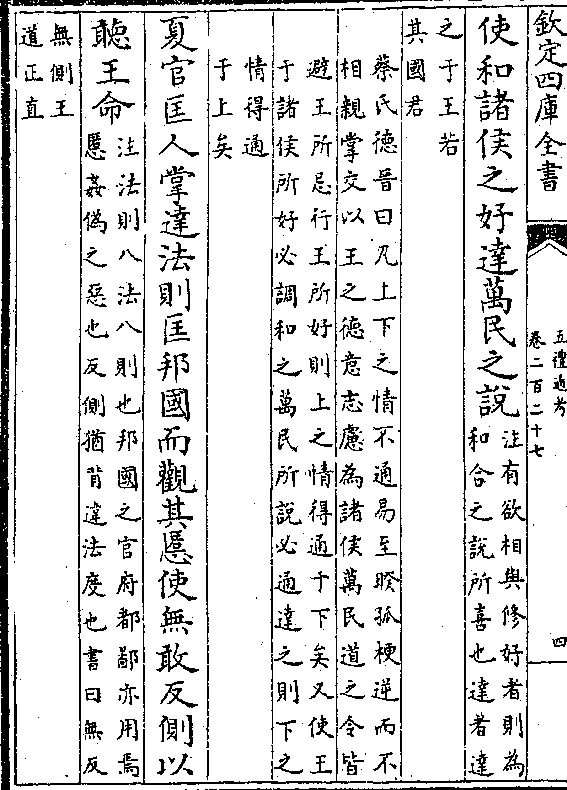 欽定四庫全書
五禮通考
卷二百二十七
四
使和諸侯之好達萬民之說注有欲相與修好者則為
和合之說所喜也達者達
之于王若
其國君
蔡氏德晉曰凡上下之情不通易至睽孤梗逆而不
相親掌交以王之德意志慮為諸侯萬民道之令皆
避王所忌行王所好則上之情得通于下矣又使王
于諸侯所好必調和之萬民所說必通達之則下之
情得通
于上矣
夏官匡人掌達法則匡邦國而觀其慝使無敢反側以
聽王命注法則八法八則也邦國之官府都鄙亦用焉
慝姦偽之惡也反側猶背違法度也書曰無反
無側王
道正直